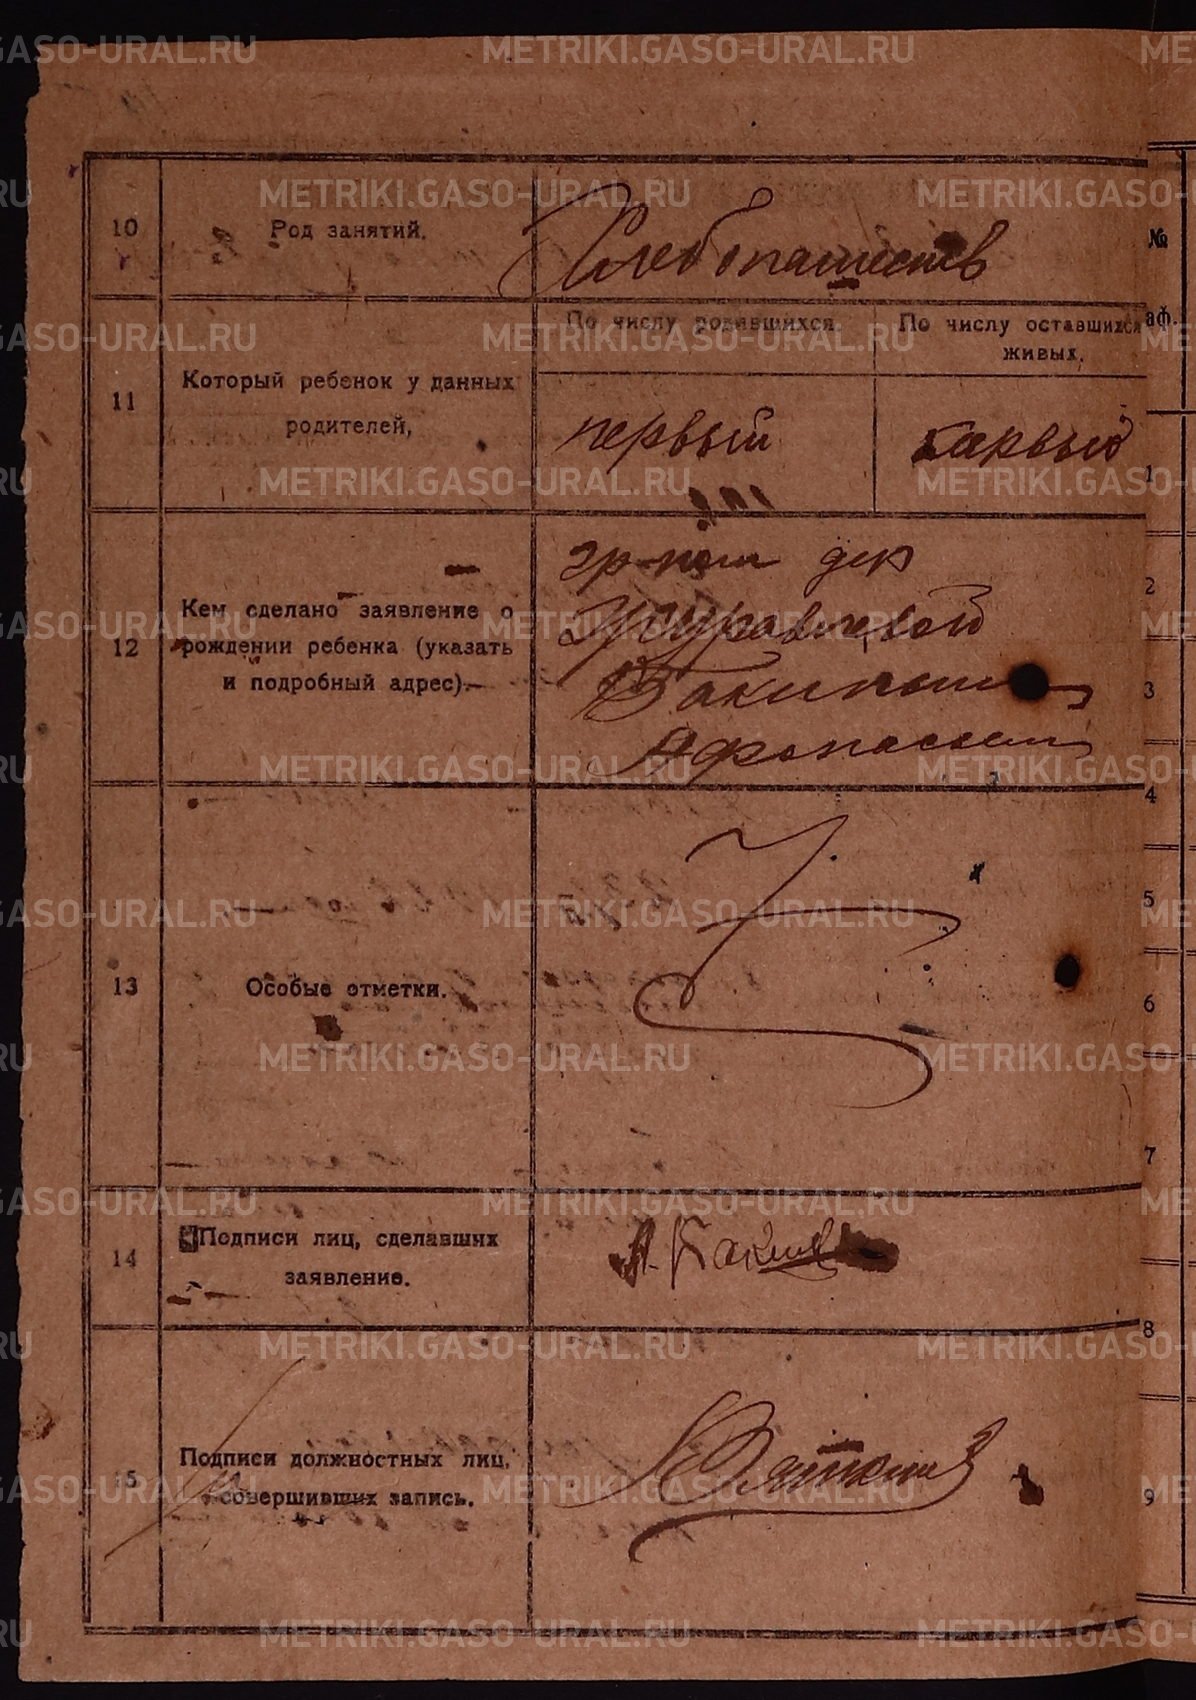 METRIKI.GASO-URAL.RU
10
Род занятий.
Хлебопашеств
11
Который ребенок у данных
родителей,
По числу родившихся
По числу оставшихся
живых.
первый
первый
12
Кем сделано заявление о
рождении ребенка (указать
и подробный адрес).—
дер
Журавлевой
13
Особые отметки.
14
Подписи лиц, сделавших
заявление.
15
Подписи должностных лиц,
совершивших запись.
№
аф.
1
2
3
4
5
6
7
8
9